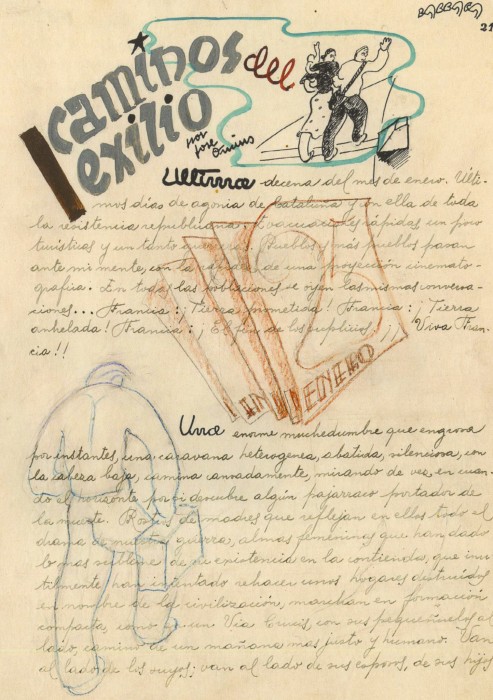 BARRACA
21
caminos del
exilio
por
Jose Omius
Ultima decena del mes de enero. Ulti-
mos días de agonia de Cataluña y con ella de toda
la resistencia republicana. Evacuaciones rápidas, un poco
turísticas y un tanto Pueblos y más pueblos pasan
ante mi mente, con la rapidez de una proyección cinemato-
gráfica. En todas las poblaciones se oyen las mismas conversa-
ciones... Francia: ¡Tierra prometida! Francia: ¡Tierra
anhelada! Francia: ¡El fin de los suplicios! ¡¡¡Viva Fran-
cia!!
ENERO
Una enorme muchedumbre que engrosa
por instantes, una caravana heterogenea, abatida, silenciosa, con
la cabeza baja, camina cansadamente, mirando de vez en cuan-
do el horizonte por si descubre algún pajarraco portador de
la muerte. Rostros de madres que reflejan en ellos todo el
drama de nuestra guerra, almas femeninas que han dado
lo mas sublime de su existencia en la contienda, que inu-
tilmente han intentado rehacer unos hogares destruidos
en nombre de la civilización, marchan en formación
compacta, como en un Via Crucis, con sus pequeñuelos al
lado, camino de un mañana mas justo y humano. Van
al lado de los suyos: van al lado de sus esposos, de sus hijos